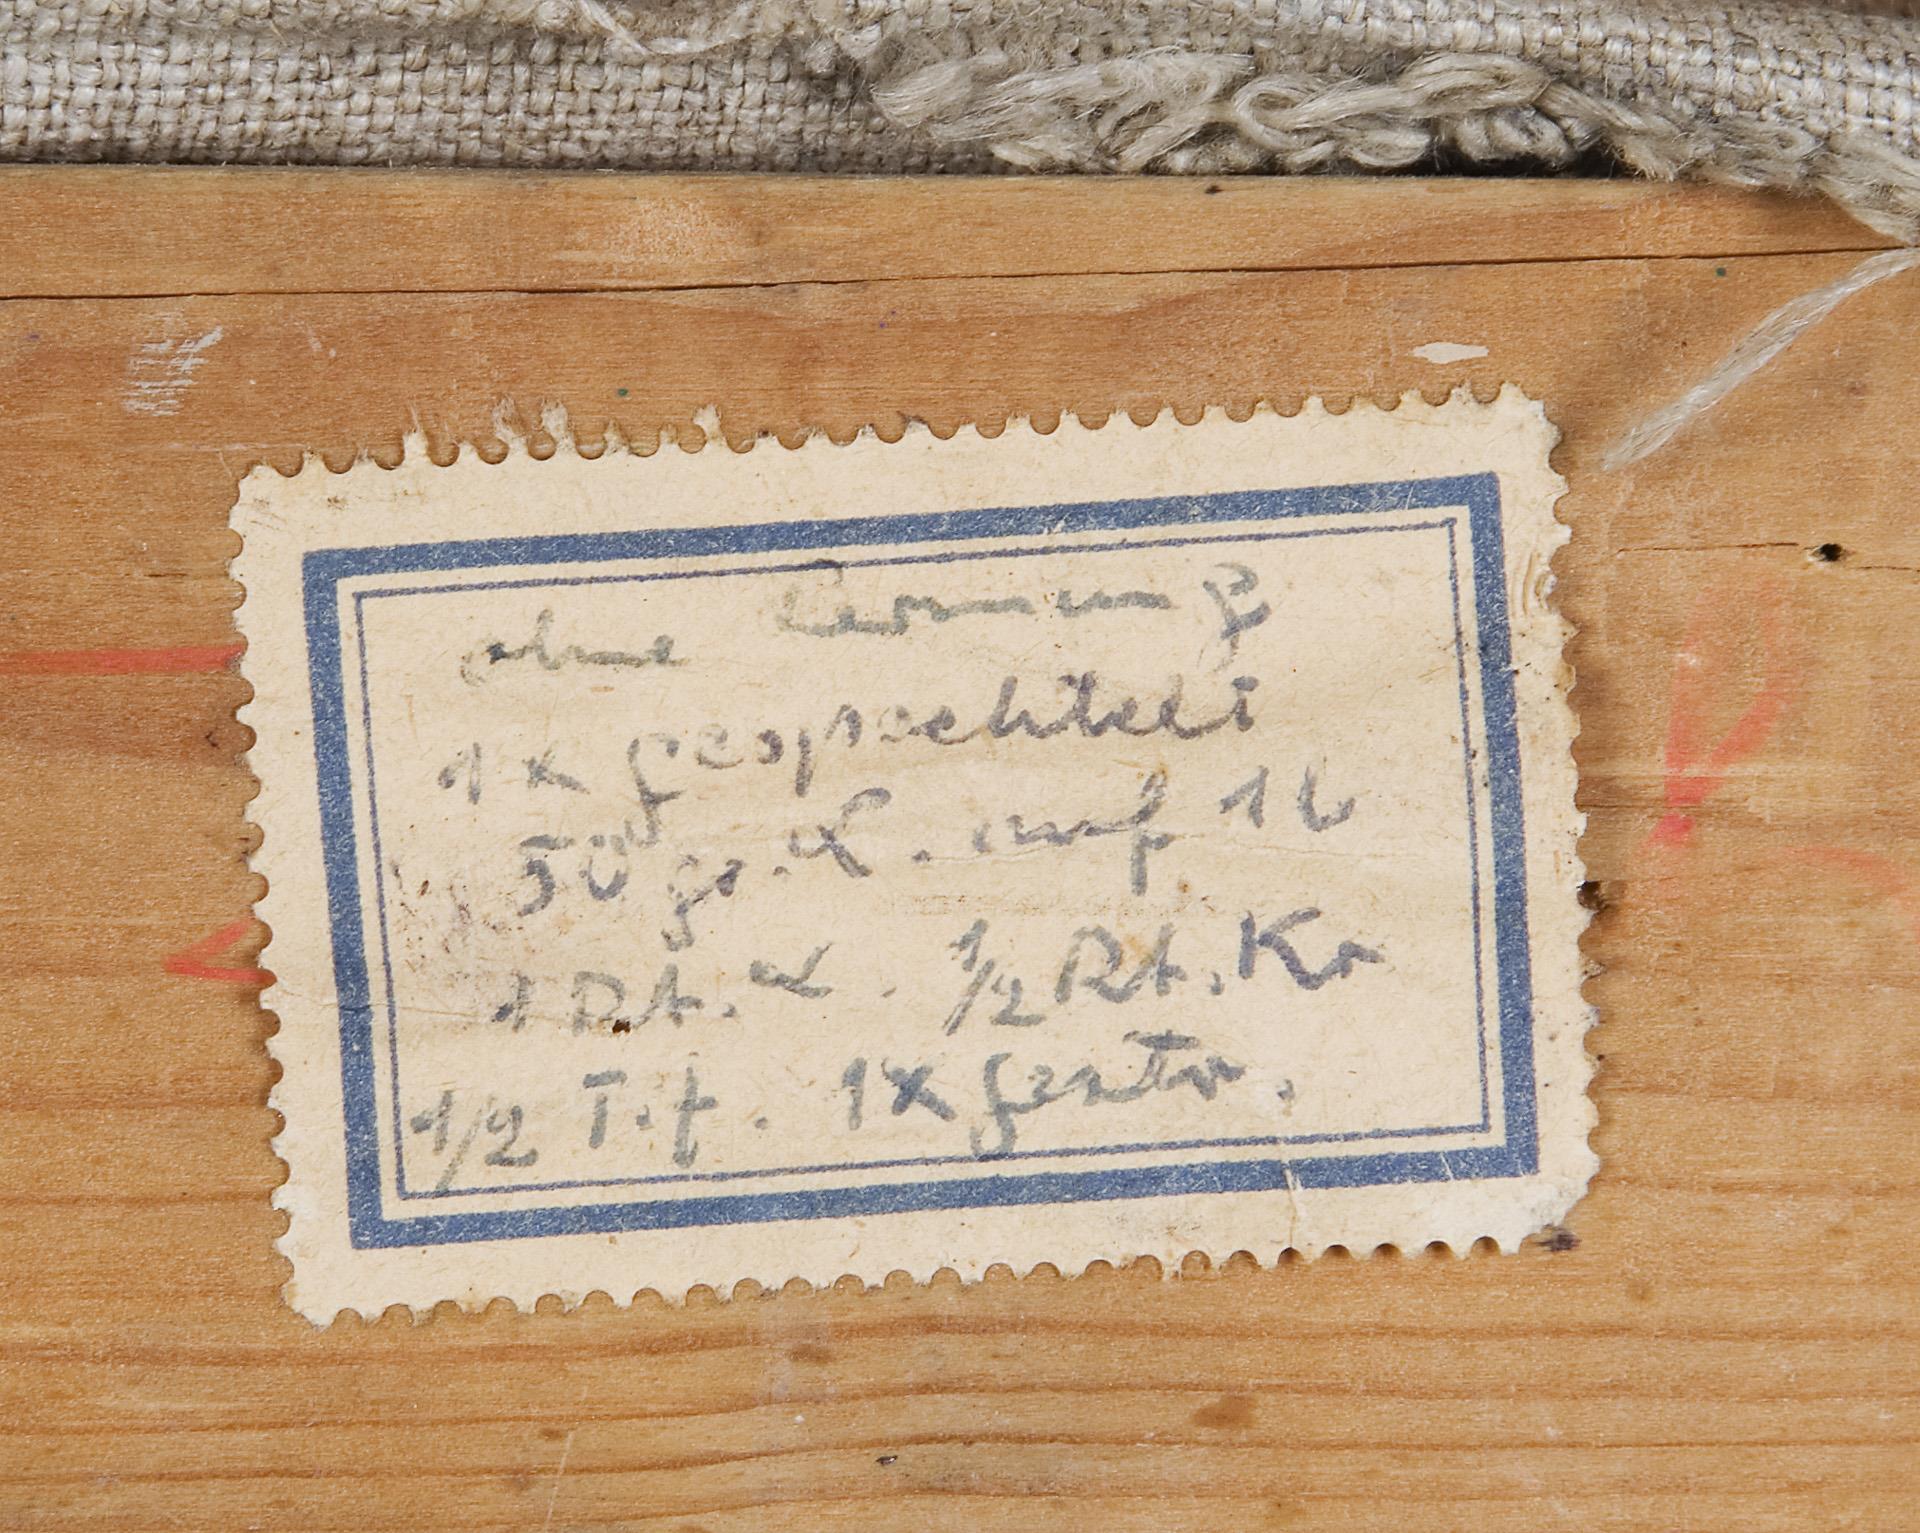 ohne Leimung
1 x gespachtelt
50 gr. L. auf 1 l
1 Rt. L. 1/2 Rt. Kr
1/2 T.f. 1x gestr.